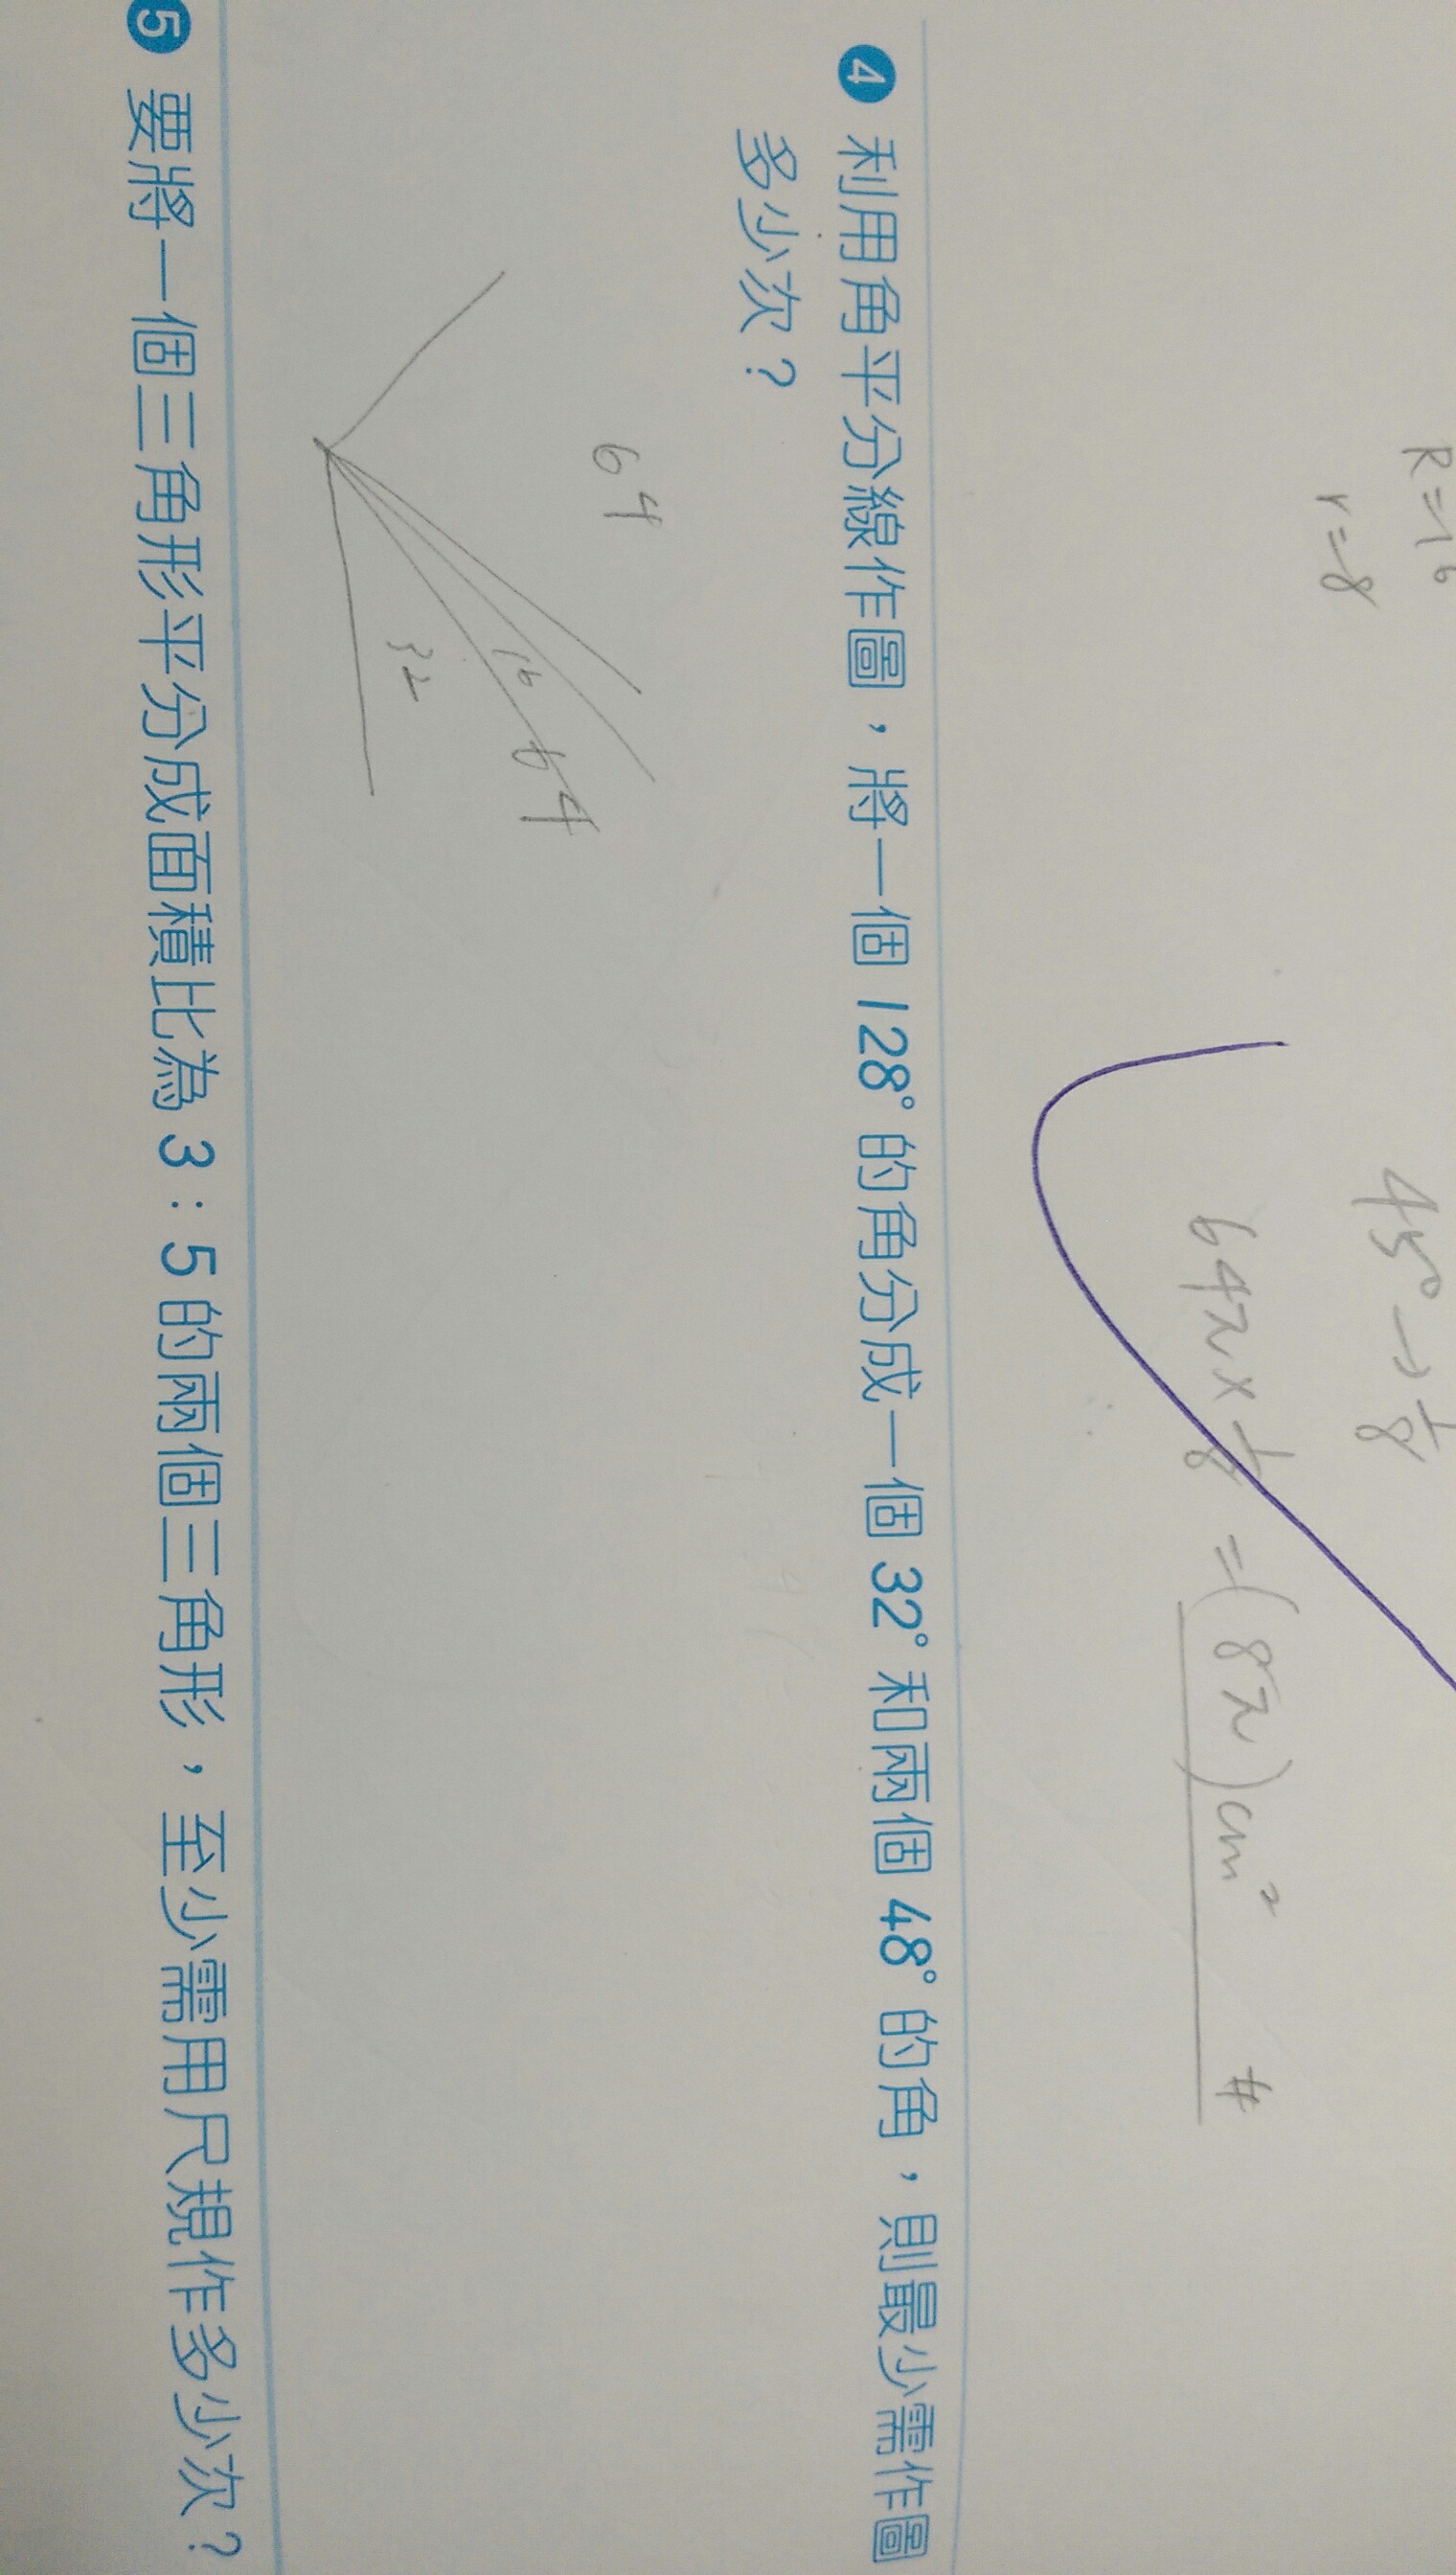 R=16
r=8
45°→1/8
64π×1/8=(8π)cm²
#
4 利用角平分線作圖，將一個 128° 的角分成一個 32° 和兩個 48° 的角，則最少需作圖
多少次？
64
16
64
32
5 要將一個三角形平分成面積比為 3：5 的兩個三角形，至少需用尺規作多少次？